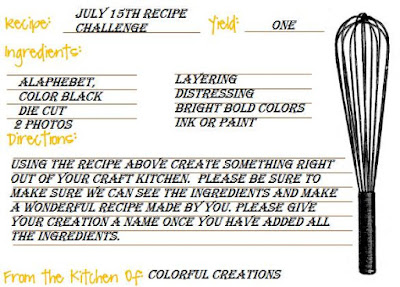 Recipe: JULY 15TH RECIPE Yield: ONE
CHALLENGE
Ingredients:
ALAPHEBET, LAYERING
COLOR BLACK DISTRESSING
DIE CUT BRIGHT BOLD COLORS
2 PHOTOS INK OR PAINT
Directions:
USING THE RECIPE ABOVE CREATE SOMETHING RIGHT
OUT OF YOUR CRAFT KITCHEN. PLEASE BE SURE TO
MAKE SURE WE CAN SEE THE INGREDIENTS AND MAKE
A WONDERFUL RECIPE MADE BY YOU. PLEASE GIVE
YOUR CREATION A NAME ONCE YOU HAVE ADDED ALL
THE INGREDIENTS.
From the Kitchen Of: COLORFUL CREATIONS